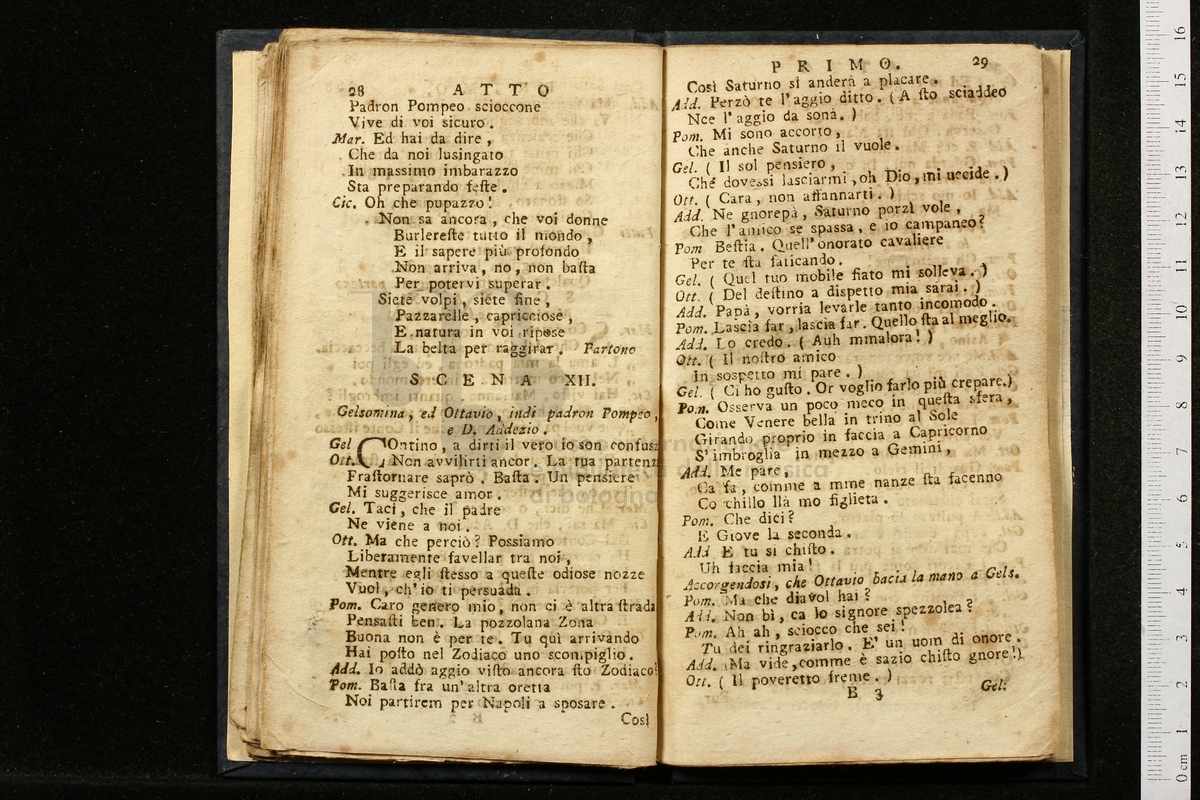 28 ATTO
Padron Pompeo scioccone
Vive di voi sicuro.
Mar. Ed hai da dire,
Che da noi lusingato
In massimo imbarazzo
Sta preparando feſte.
Cic. Oh che pupazzo!
Non sa ancora, che voi donne
Burlereſte tutto il mondo,
E il sapere più profondo
Non arriva, no, non baſta
Per potervi superar.
Siete volpi, siete fine,
Pazzarelle, capricciose,
E natura in voi ripose
La belta per raggirar. Partono
SCENA XII.
Gelsomina, ed Ottavio, indi padron Pompeo,
e D. Addezio.
Gel COntino, a dirti il vero io son confusa
Ott. Non avvilirti ancor. La tua partenz
Fraſtornare saprò. Baſta. Un pensiere
Mi suggerisce amor.
Gel. Taci, che il padre
Ne viene a noi.
Ott. Ma che perciò? Possiamo
Liberamente favellar tra noi,
Mentre egli ſtesso a queſte odiose nozze
Vuol, ch'io ti persuada.
Pom. Caro genero mio, non ci è altra ſtrada
Pensaſti ben. La pozzolana Zona
Buona non è per te. Tu quì arrivando
Hai poſto nel Zodiaco uno scompiglio.
Add. Io addò aggio viſto ancora ſto Zodiaco?
Pom. Baſta fra un'altra oretta
Noi partirem per Napoli a sposare.
Così
PRIMO. 29
Così Saturno si anderà a placare.
Add. Perzò te l'aggio ditto. (A ſto sciaddeo
Nce l'aggio da sonà.)
Pom. Mi sono accorto,
Che anche Saturno il vuole.
Gel. (Il sol pensiero,
Che dovessi lasciarmi, oh Dio, mi uccide.)
Ott. (Cara, non affannarti.)
Add. Ne gnorepà, Saturno porzì vole,
Che l'amico se spassa, e io campaneo?
Pom Beſtia. Quell'onorato cavaliere
Per te ſta faticando.
Gel. (Quel tuo mobile fiato mi solleva.)
Ott. (Del deſtino a dispetto mia sarai.)
Add. Papà, vorria levarle tanto incomodo.
Pom. Lascia far, lascia far. Quello ſta al meglio.
Add. Lo credo. (Auh mmalora!)
Ott. (Il noſtro amico
In sospetto mi pare.)
Gel. (Ci ho guſto. Or voglio farlo più crepare.)
Pom. Osserva un poco meco in queſta sfera,
Come Venere bella in trino al Sole
Girando proprio in faccia a Capricorno
S'imbroglia in mezzo a Gemini,
Add. Me pare,
Ca fa, comme a mme nanze ſta facenno
Co chillo llà mo figlieta.
Pom. Che dici?
E Giove la seconda.
Add E tu si chiſto.
Uh faccia mia!
Accorgendosi, che Ottavio bacia la mano a Gels.
Pom. Ma che diavol hai?
Add. Non bì, ca lo signore spezzolea?
Pom. Ah ah, sciocco che sei!
Tu dei ringraziarlo. E' un uom di onore.
Add. (Ma vide, comme è sazio chiſto gnore!)
Ott. (Il poveretto freme.)
B 3 Gel.